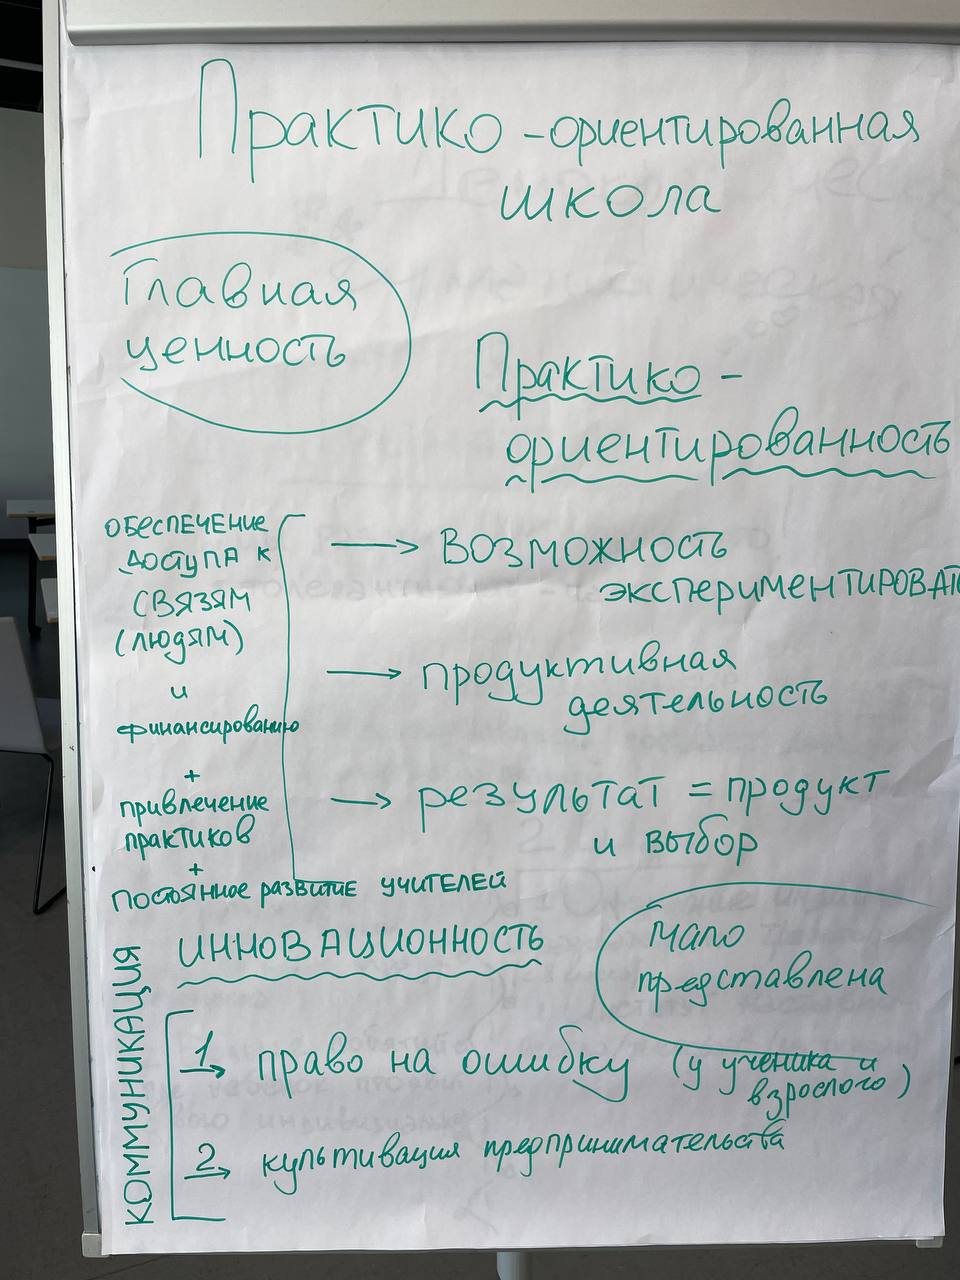 Практико-ориентированная
школа
Главная
ценность
Практико-
ориентированность
ОБЕСПЕЧЕНИЕ
ДОСТУПА К
СВЯЗЯМ
(ЛЮДЯМ)
и
финансированию
+
привлечение
практиков
+
ПОСТОЯННОЕ РАЗВИТИЕ УЧИТЕЛЕЙ
→ ВОЗМОЖНОСТЬ
ЭКСПЕРИМЕНТИРОВАТЬ
→ продуктивная
деятельность
→ результат = продукт
и выбор
ИННОВАЦИОННОСТЬ
Мало
представлена
КОММУНИКАЦИЯ
1 право на ошибку (у ученика и
взрослого)
2 культивация предпринимательства